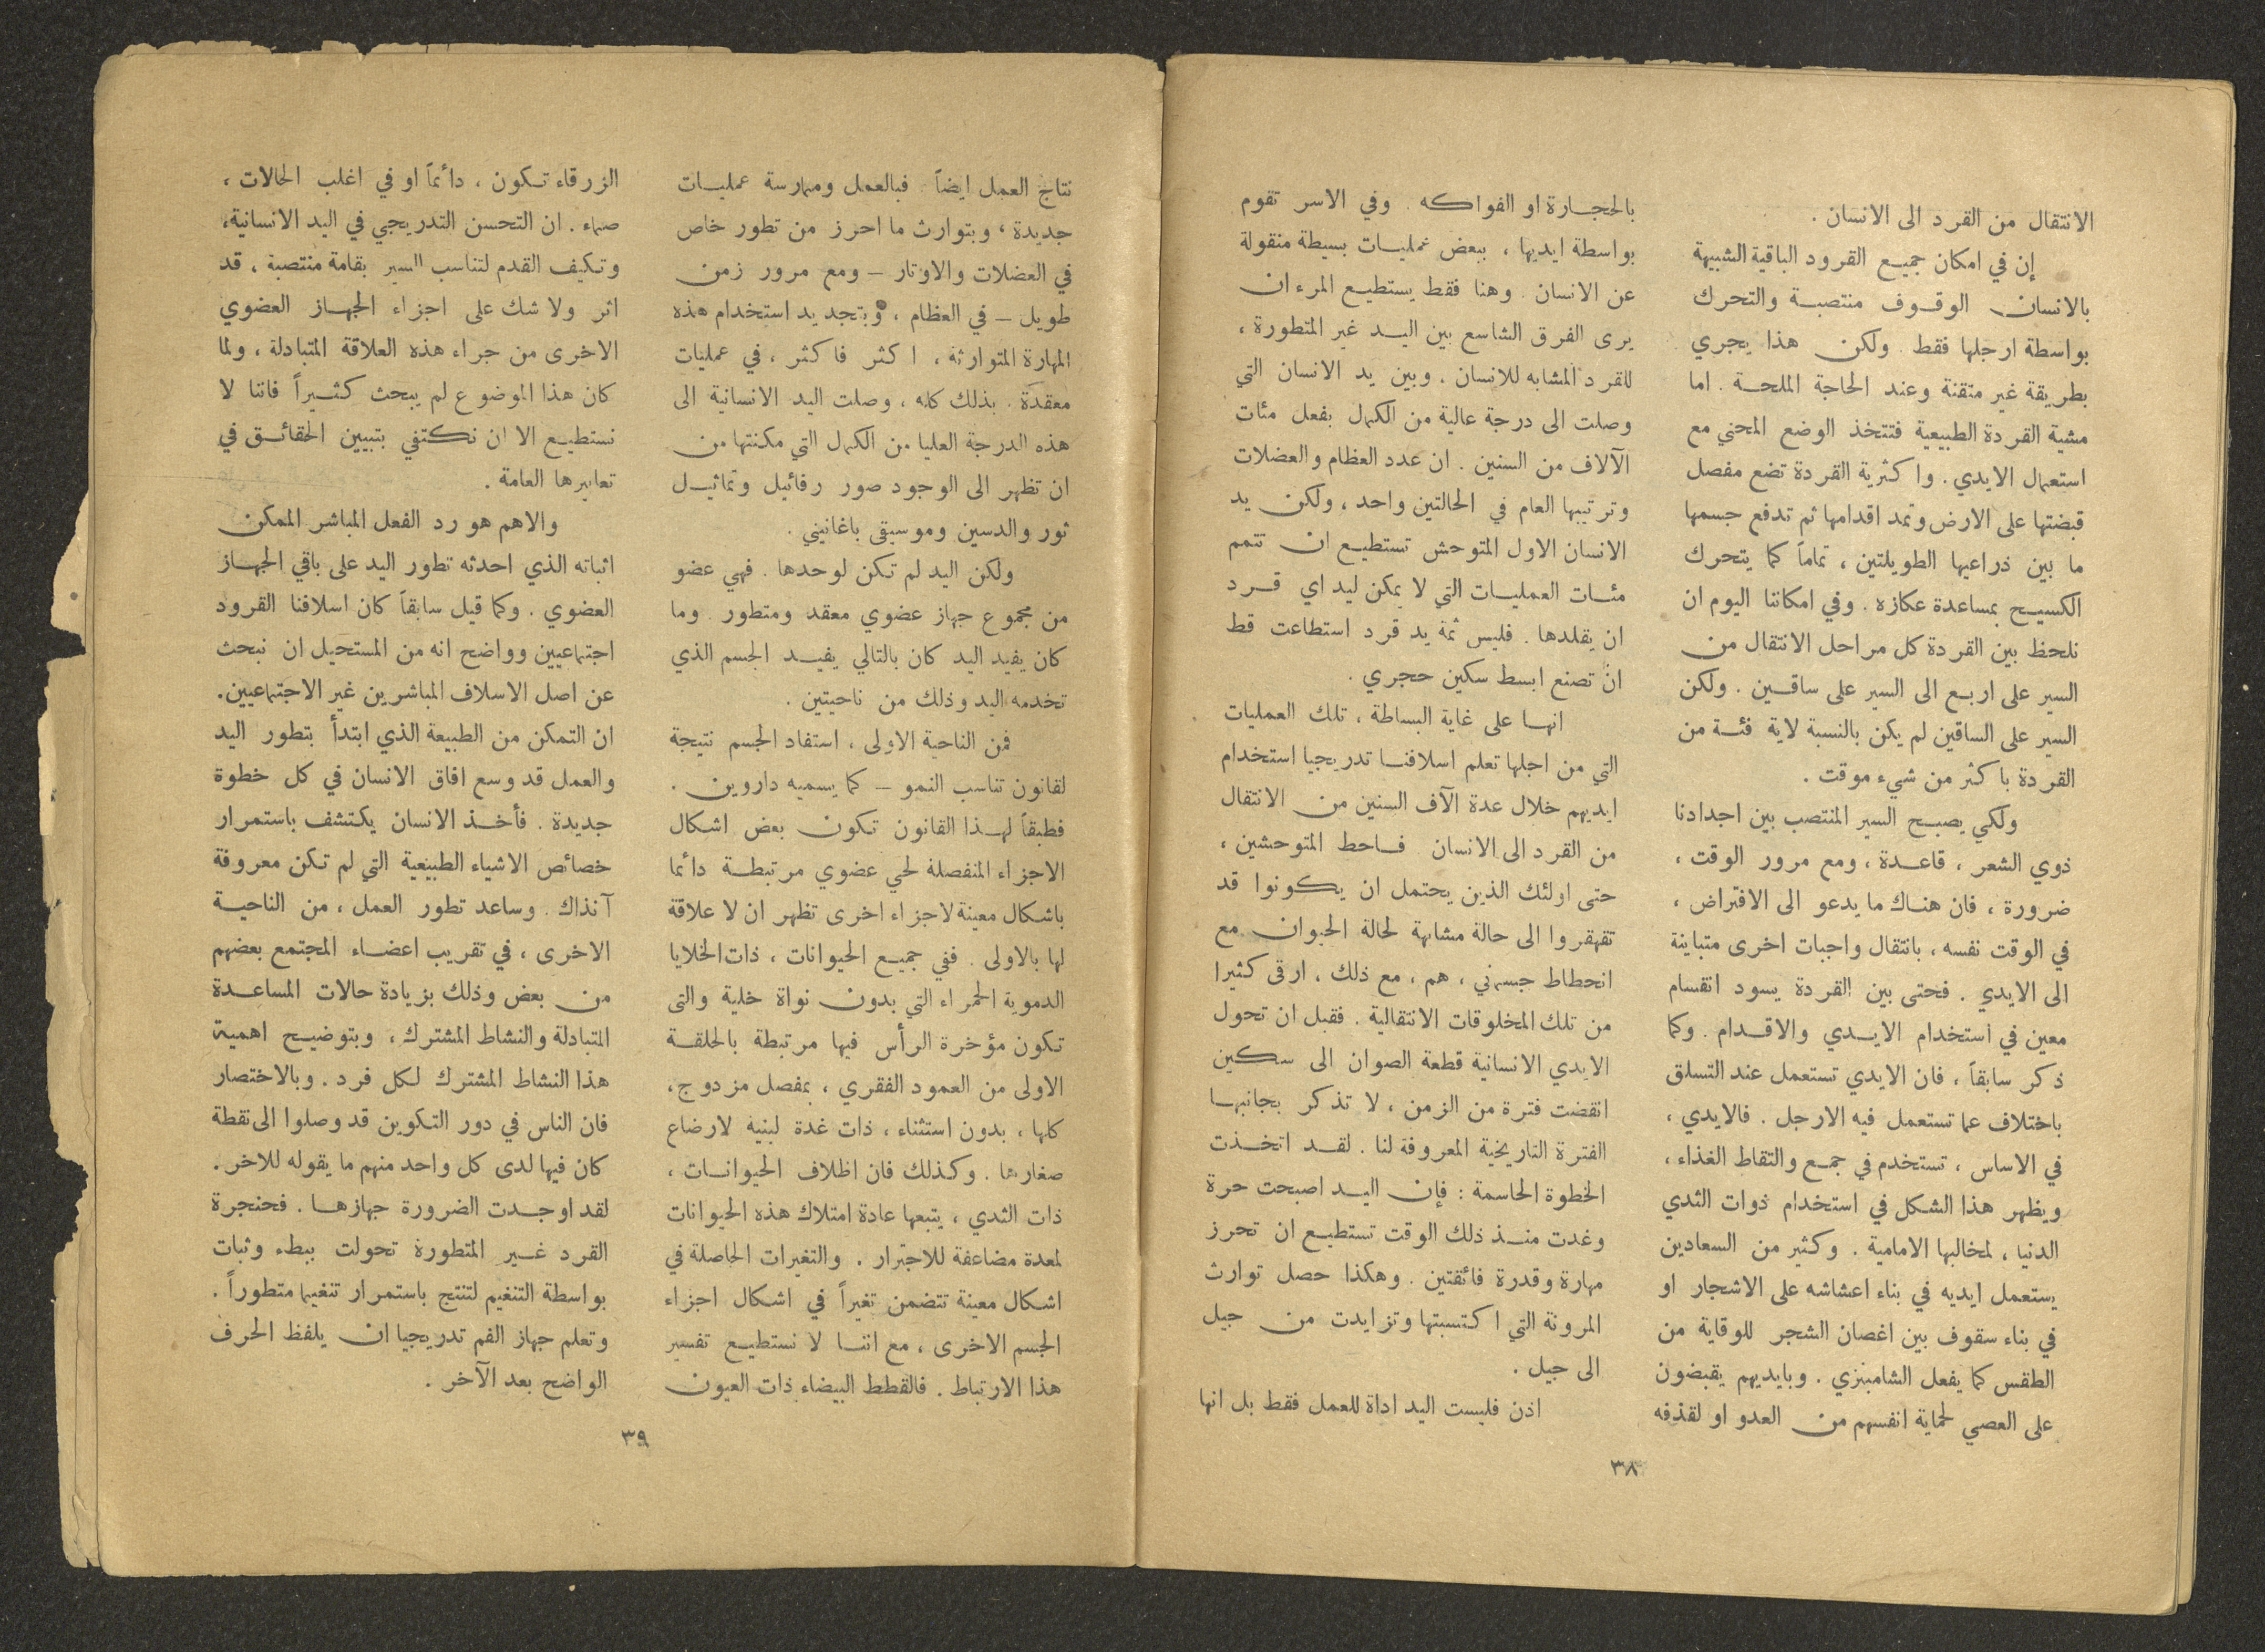 الانتقال من القرد الى الانسان .
إن في امكان جميع القرود الباقية الشبيهة
بالانسان الوقوف منتصبة والتحرك
بواسطة ارجلها فقط . ولكن هذا يجري
بطريقة غير متقنة وعند الحاجة الملحة . اما
مشية القردة الطبيعية فتتخذ الوضع المحني مع
استعمال الايدي . واكثرية القردة تضع مفصل
قبضتها على الارض وتمد اقدامها ثم تدفع جسمها
ما بين ذراعيها الطويلتين ، تماماً كما يتحرك
الكسيح بمساعدة عكازه . وفي امكاننا اليوم ان
نلحظ بين القردة كل مراحل الانتقال من
السير على اربع الى السير على ساقين . ولكن
السير على الساقين لم يكن بالنسبة لاية فئة من
القردة باكثر من شيء موقت .
ولكي يصبح السير المنتصب بين اجدادنا
ذوي الشعر ، قاعدة ، ومع مرور الوقت ،
ضرورة ، فان هناك ما يدعو الى الافتراض ،
في الوقت نفسه ، بانتقال واجبات اخرى متباينة
الى الايدي . فحتى بين القردة يسود انقسام
معين في استخدام الايدي والاقدام . وكما
ذكر سابقاً ، فان الايدي تستعمل عند التسلق
باختلاف عما تستعمل فيه الارجل . فالايدي ،
في الاساس ، تستخدم في جمع والتقاط الغذاء ،
ويظهر هذا الشكل في استخدام ذوات الثدي
الدنيا ، لمخالبها الامامية . وكثير من السعادين
يستعمل ايديه في بناء اعشاشه على الاشجار او
في بناء سقوف بين اغصان الشجر للوقاية من
الطقس كما يفعل الشامبنزي . وبايديهم يقبضون
على العصي لحماية انفسهم من العدو او لقذفه
بالحجارة او الفواكه . وفي الاسر تقوم
بواسطة ايديها ، ببعض عمليات بسيطة منقولة
عن الانسان . وهنا فقط يستطيع المرء ان
يرى الفرق الشاسع بين اليد غير المتطورة ،
للقرد المشابه للانسان ، وبين يد الانسان التي
وصلت الى درجة عالية من الكمال بفعل مئات
الآلاف من السنين . ان عدد العظام والعضلات
وترتيبها العام في الحالتين واحد ، ولكن يد
الانسان الاول المتوحش تستطيع ان تتمم
مئات العمليات التي لا يمكن ليد اي قرد
ان يقلدها . فليس ثمة يد قرد استطاعت قط
ان تصنع ابسط سكين حجري .
انها على غاية البساطة ، تلك العمليات
التي من اجلها تعلم اسلافنا تدريجيا استخدام
ايديهم خلال عدة آلاف السنين من الانتقال
من القرد الى الانسان فاحط المتوحشين ،
حتى اولئك الذين يحتمل ان يكونوا قد
تقهقروا الى حالة مشابهة لحالة الحيوان مع
انحطاط جسماني ، هم ، مع ذلك ، ارقى كثيرا
من تلك المخلوقات الانتقالية . فقبل ان تحول
الايدي الانسانية قطعة الصوان الى سكين
انقضت فترة من الزمن ، لا تذكر بجانبها
الفترة التاريخية المعروفة لنا . لقد اتخذت
الخطوة الحاسمة : فإن اليد اصبحت حرة
وغدت منذ ذلك الوقت تستطيع ان تحرز
مهارة وقدرة فائقتين . وهكذا حصل توارث
المرونة التي اكتسبتها وتزايدت من جيل
الى جيل .
اذن فليست اليد اداة للعمل فقط بل انها
٣٨
نتاج العمل ايضاً . فبالعمل وممارسة عمليات
جديدة ، وبتوارث ما احرز من تطور خاص
في العضلات والاوتار – ومع مرور زمن
طويل – في العظام ، وبتجديد استخدام هذه
المهارة المتوارثة ، اكثر فاكثر ، في عمليات
معقدة . بذلك كله ، وصلت اليد الانسانية الى
هذه الدرجة العليا من الكمال التي مكنتها من
ان تظهر الى الوجود صور رفائيل وتماثيل
ثور والدسين وموسيقى باغانيني .
ولكن اليد لم تكن لوحدها . فهي عضو
من مجموع جهاز عضوي معقد ومتطور . وما
كان يفيد اليد كان بالتالي يفيد الجسم الذي
تخدمه اليد وذلك من ناحيتين .
فمن الناحية الاولى ، استفاد الجسم نتيجة
لقانون تناسب النمو – كما يسميه داروين .
فطبقاً لهذا القانون تكون بعض اشكال
الاجزاء المنفصلة لحي عضوي مرتبطة دائما
باشكال معينة لاجزاء اخرى تظهر ان لا علاقة
لها بالاولى . ففي جميع الحيوانات ، ذات الخلايا
الدموية الحمراء التي بدون نواة خلية والتى
تكون مؤخرة الرأس فيها مرتبطة بالحلقة
الاولى من العمود الفقري ، بمفصل مزدوج ،
كلها ، بدون استثناء ، ذات غدة لبنية لارضاع
صغارها . وكذلك فان اظلاف الحيوانات ،
ذات الثدي ، يتبعها عادة امتلاك هذه الحيوانات
لمعدة مضاعفة للاجترار . والتغيرات الحاصلة في
اشكال معينة تتضمن تغيراً في اشكال اجزاء
الجسم الاخرى ، مع اننا لا نستطيع تفسير
هذا الارتباط . فالقطط البيضاء ذات العيون
الزرقاء تكون ، دائماً او في اغلب الحالات ،
صماء . ان التحسن التدريجي في اليد الانسانية ،
وتكيف القدم لتناسب السير بقامة منتصبة ، قد
اثر ولا شك على اجزاء الجهاز العضوي
الاخرى من جراء هذه العلاقة المتبادلة ، ولما
كان هذا الموضوع لم يبحث كثيراً فاننا لا
نستطيع الا ان نكتفي بتبيين الحقائق في
تعابيرها العامة .
والاهم هو رد الفعل المباشر الممكن
اثباته الذي احدثه تطور اليد على باقي الجهاز
العضوي . وكما قيل سابقاً كان اسلافنا القرود
اجتماعيين وواضح انه من المستحيل ان نبحث
عن اصل الاسلاف المباشرين غير الاجتماعيين .
ان التمكن من الطبيعة الذي ابتدأ بتطور اليد
والعمل قد وسع افاق الانسان في كل خطوة
جديدة . فأخذ الانسان يكتشف باستمرار
خصائص الاشياء الطبيعية التي لم تكن معروفة
آنذاك . وساعد تطور العمل ، من الناحية
الاخرى ، في تقريب اعضاء المجتمع بعضهم
من بعض وذلك بزيادة حالات المساعدة
المتبادلة والنشاط المشترك ، وبتوضيح اهمية
هذا النشاط المشترك لكل فرد . وبالاختصار
فان الناس في دور التكوين قد وصلوا الى نقطة
كان فيها لدى كل واحد منهم ما يقوله للاخر .
لقد اوجدت الضرورة جهازها . فحنجرة
القرد غير المتطورة تحولت ببطء وثبات
بواسطة التنغيم لتنتج باستمرار تنغيما متطوراً .
وتعلم جهاز الفم تدريجيا ان يلفظ الحرف
الواضح بعد الآخر .
٣٩